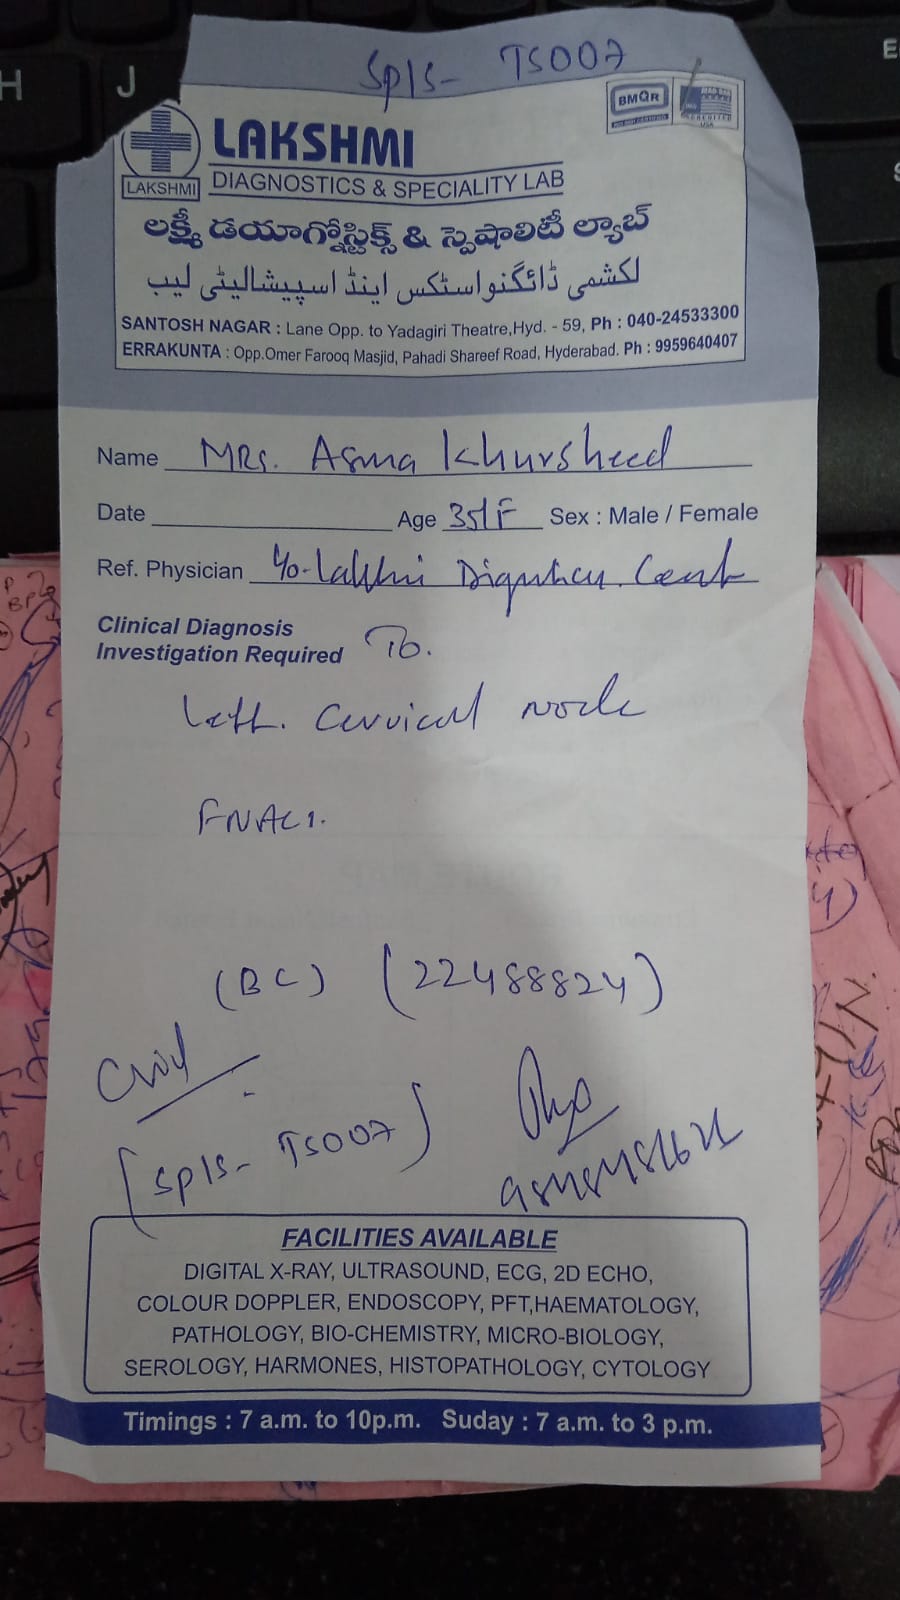 SPIS- TS007
BMQR
LAKSHMI
LAKSHMI
DIAGNOSTICS & SPECIALITY LAB
లక్ష్మీ డయాగ్నోస్టిక్స్ & స్పెషాలిటీ ల్యాబ్
لکشمی ڈائگنواسٹکس اینڈ اسپیشالیٹی لیب
SANTOSH NAGAR : Lane Opp. to Yadagiri Theatre,Hyd. - 59, Ph : 040-24533300
ERRAKUNTA : Opp.Omer Farooq Masjid, Pahadi Shareef Road, Hyderabad. Ph : 9959640407
Name MRS. Asma Khursheed
Date Age 35/F Sex : Male / Female
Ref. Physician
Clinical Diagnosis
Investigation Required To.
Left. Cervical node
FNAC
(BC) (22488824)
[SPIS- TS007]
FACILITIES AVAILABLE
DIGITAL X-RAY, ULTRASOUND, ECG, 2D ECHO,
COLOUR DOPPLER, ENDOSCOPY, PFT,HAEMATOLOGY,
PATHOLOGY, BIO-CHEMISTRY, MICRO-BIOLOGY,
SEROLOGY, HARMONES, HISTOPATHOLOGY, CYTOLOGY
Timings : 7 a.m. to 10p.m. Suday : 7 a.m. to 3 p.m.